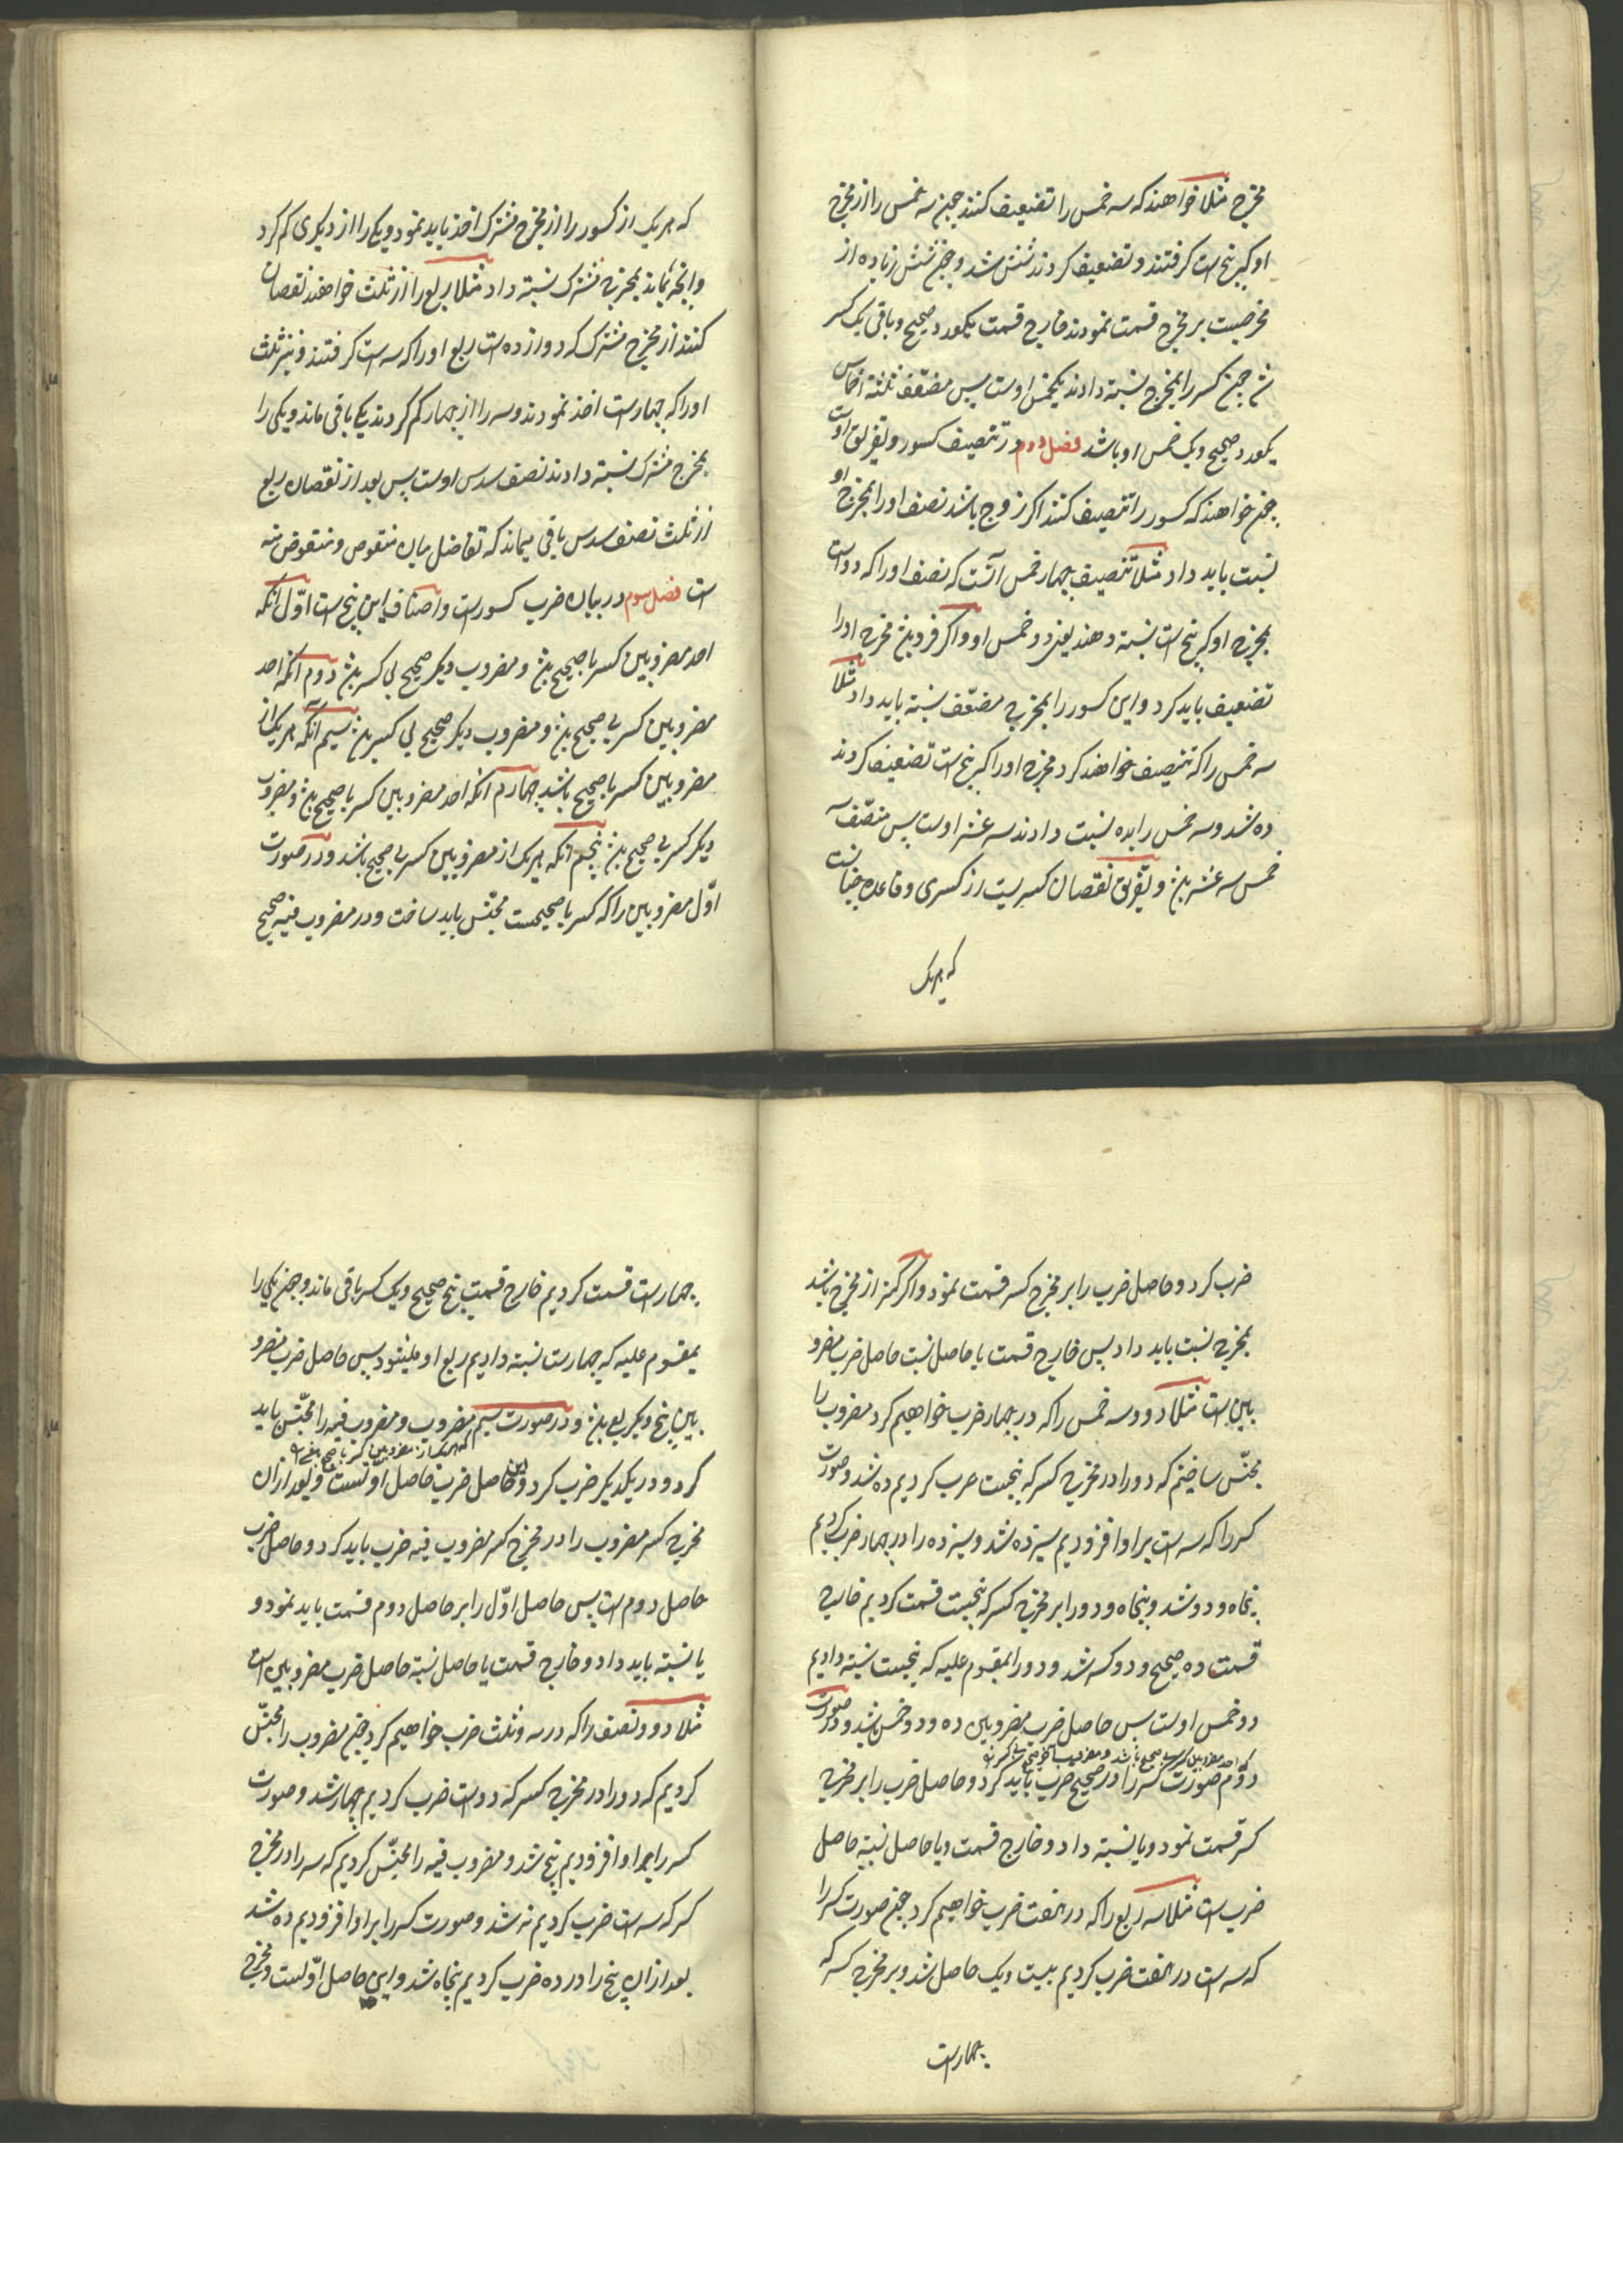 مخرج مثلا خواهند که سه خمس را تضعیف کنند چون سه خمس را از مخرج
او که پنج است کرفتند و تضعیف کردند شش شد و چون شش زیاده از
مخرجست بر مخرج قسمت نمودند خارج قسمت یکعدد صحیح و باقی یک کسر
شد چون کسر را بمخرج نسبته دادند یکخمس اوست پس مضعّف ثلثة اخماس
یکعدد صحیح و یک خمس او باشد فصل دوم در تنصیف کسور و تفریق اوست
چون خواهند که کسور را تنصیف کنند اکر زوج باشد نصف او را بمخرج او
نسبت باید داد مثلا تنصیف چهار خمس آنست که نصف او را که دو است
بمخرج او که پنج است نسبته دهند یعنی دو خمس او و اکر فرد باشد مخرج او را
تضعیف باید کرد و این کسور را بمخرج مضعّف نسبته باید داد مثلا
سه خمس را که تنصیف خواهند کرد مخرج او را که پنج است تضعیف کردند
ده شد و سه خمس را بده نسبت دادند سه عشر اوست پس منصّف سه
خمس سه عشر باشد و تفریق نقصان کسریست از کسری و قاعده چنانست
که هر یک
که هر یک از کسور را از مخرج مشترک اخذ باید نمود و یکی را از دیکری کم کرد
و آنچه بماند بمخرج مشترک نسبته داد مثلا ربع را از ثلث خواهند نقصان
کنند از مخرج مشترک که دوازده است ربع او را که سه است کرفتند و نیز ثلث
او را که چهار است اخذ نمودند و سه را از چهار کم کردند یکی باقی ماند و یکی را
بمخرج مشترک نسبته دادند نصف سدس اوست پس بعد از نقصان ربع
از ثلث نصف سدس باقی میماند که تفاضل میان منقوص و منقوص منه
است فصل سوم در بیان ضرب کسورست و اصناف این پنج است اوّل آنکه
احد مضروبین کسر با صحیح باشد و مضروب دیکر صحیح بی کسر باشد دوم آنکه احد
مضروبین کسر بی صحیح باشد و مضروب دیکر صحیح بی کسر باشد سیم آنکه هر یک از
مضروبین کسر با صحیح باشد چهارم آنکه احد مضروبین کسر با صحیح باشد و مضروب
دیکر کسر بی صحیح باشد پنجم آنکه هر یک از مضروبین کسر بی صحیح باشد و در صورت
اوّل مضروبین را که کسر با صحیحست مجنّس باید ساخت و در مضروب فیه صحیح
ضرب کرد و حاصل ضرب را بر مخرج کسر قسمت نمود و اکر کمتر از مخرج باشد
بمخرج نسبت باید داد پس خارج قسمت یا حاصل نسبت حاصل ضرب مضرو
بین است مثلا دو و سه خمس را که در چهار ضرب خواهیم کرد مضروب را
مجنّس ساختیم که دو را در مخرج کسر که پنجست ضرب کردیم ده شد و صورت
کسر را که سه است بر او افزودیم سیزده شد و سیزده را در چهار ضرب کردیم
پنجاه و دو شد و پنجاه و دو را بر مخرج کسر که پنجست قسمت کردیم خارج
قسمت ده صحیح و دو کسر شد و دو را بمقسوم علیه که پنجست نسبته دادیم
دو خمس اوست پس حاصل ضرب مضروبین ده و دو خمس باشد و در صورت
که احد مضروبین کسر بی صحیح باشد و مضروب دیکر صحیح بی کسر
دوّم صورت کسر را در صحیح ضرب باید کرد و حاصل ضرب را بر مخرج
کسر قسمت نمود و یا نسبته داد و خارج قسمت و یا حاصل نسبته حاصل
ضرب است مثلا سه ربع را که در هفت ضرب خواهیم کرد چون صورت کسر را
که سه است در هفت ضرب کردیم بیست و یک حاصل شد و بر مخرج کسر که
چهار است
چهار است قسمت کردیم خارج قسمت پنج صحیح و یک کسر باقی ماند و چون یکی را
بمقسوم علیه که چهارست نسبته دادیم ربع او میشود پس حاصل ضرب مضرو
بین پنج و یکربع باشد و در صورت سیم مضروب و مضروب فیه را مجنّس باید
که هر یک از مضروبین کسر با صحیح
کرد و در یکدیکر ضرب کرد و این حاصل ضرب حاصل اوّلست و بعد از آن
مخرج کسر مضروب را در مخرج کسر مضروب فیه ضرب باید کرد و حاصل ضرب
حاصل دوم است پس حاصل اوّل را بر حاصل دوم قسمت باید نمود و
یا نسبته باید داد و خارج قسمت یا حاصل نسبته حاصل ضرب مضروبین است
مثلا دو و نصف را که در سه و ثلث ضرب خواهیم کرد چون مضروب را مجنّس
کردیم که دو را در مخرج کسر که دو است ضرب کردیم چهار شد و صورت
کسر را بر او افزودیم پنج شد و مضروب فیه را مجنّس کردیم که سه را در مخرج
کسر که سه است ضرب کردیم نه شد و صورت کسر را بر او افزودیم ده شد
بعد از آن پنج را در ده ضرب کردیم پنجاه شد و این حاصل اوّلست و مخرج